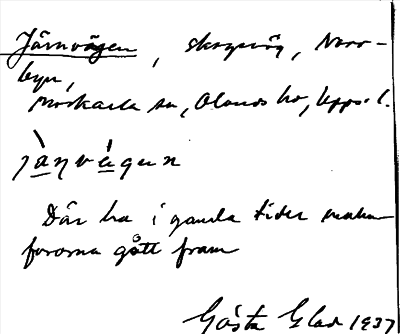 Järnvägen, skogsväg, Norr-
byn,
Morkarla sn, Olands hd, Upps. l.
jànvágen
Där ha i gamla tider malm
fororna gått fram
Gösta Glad 1937